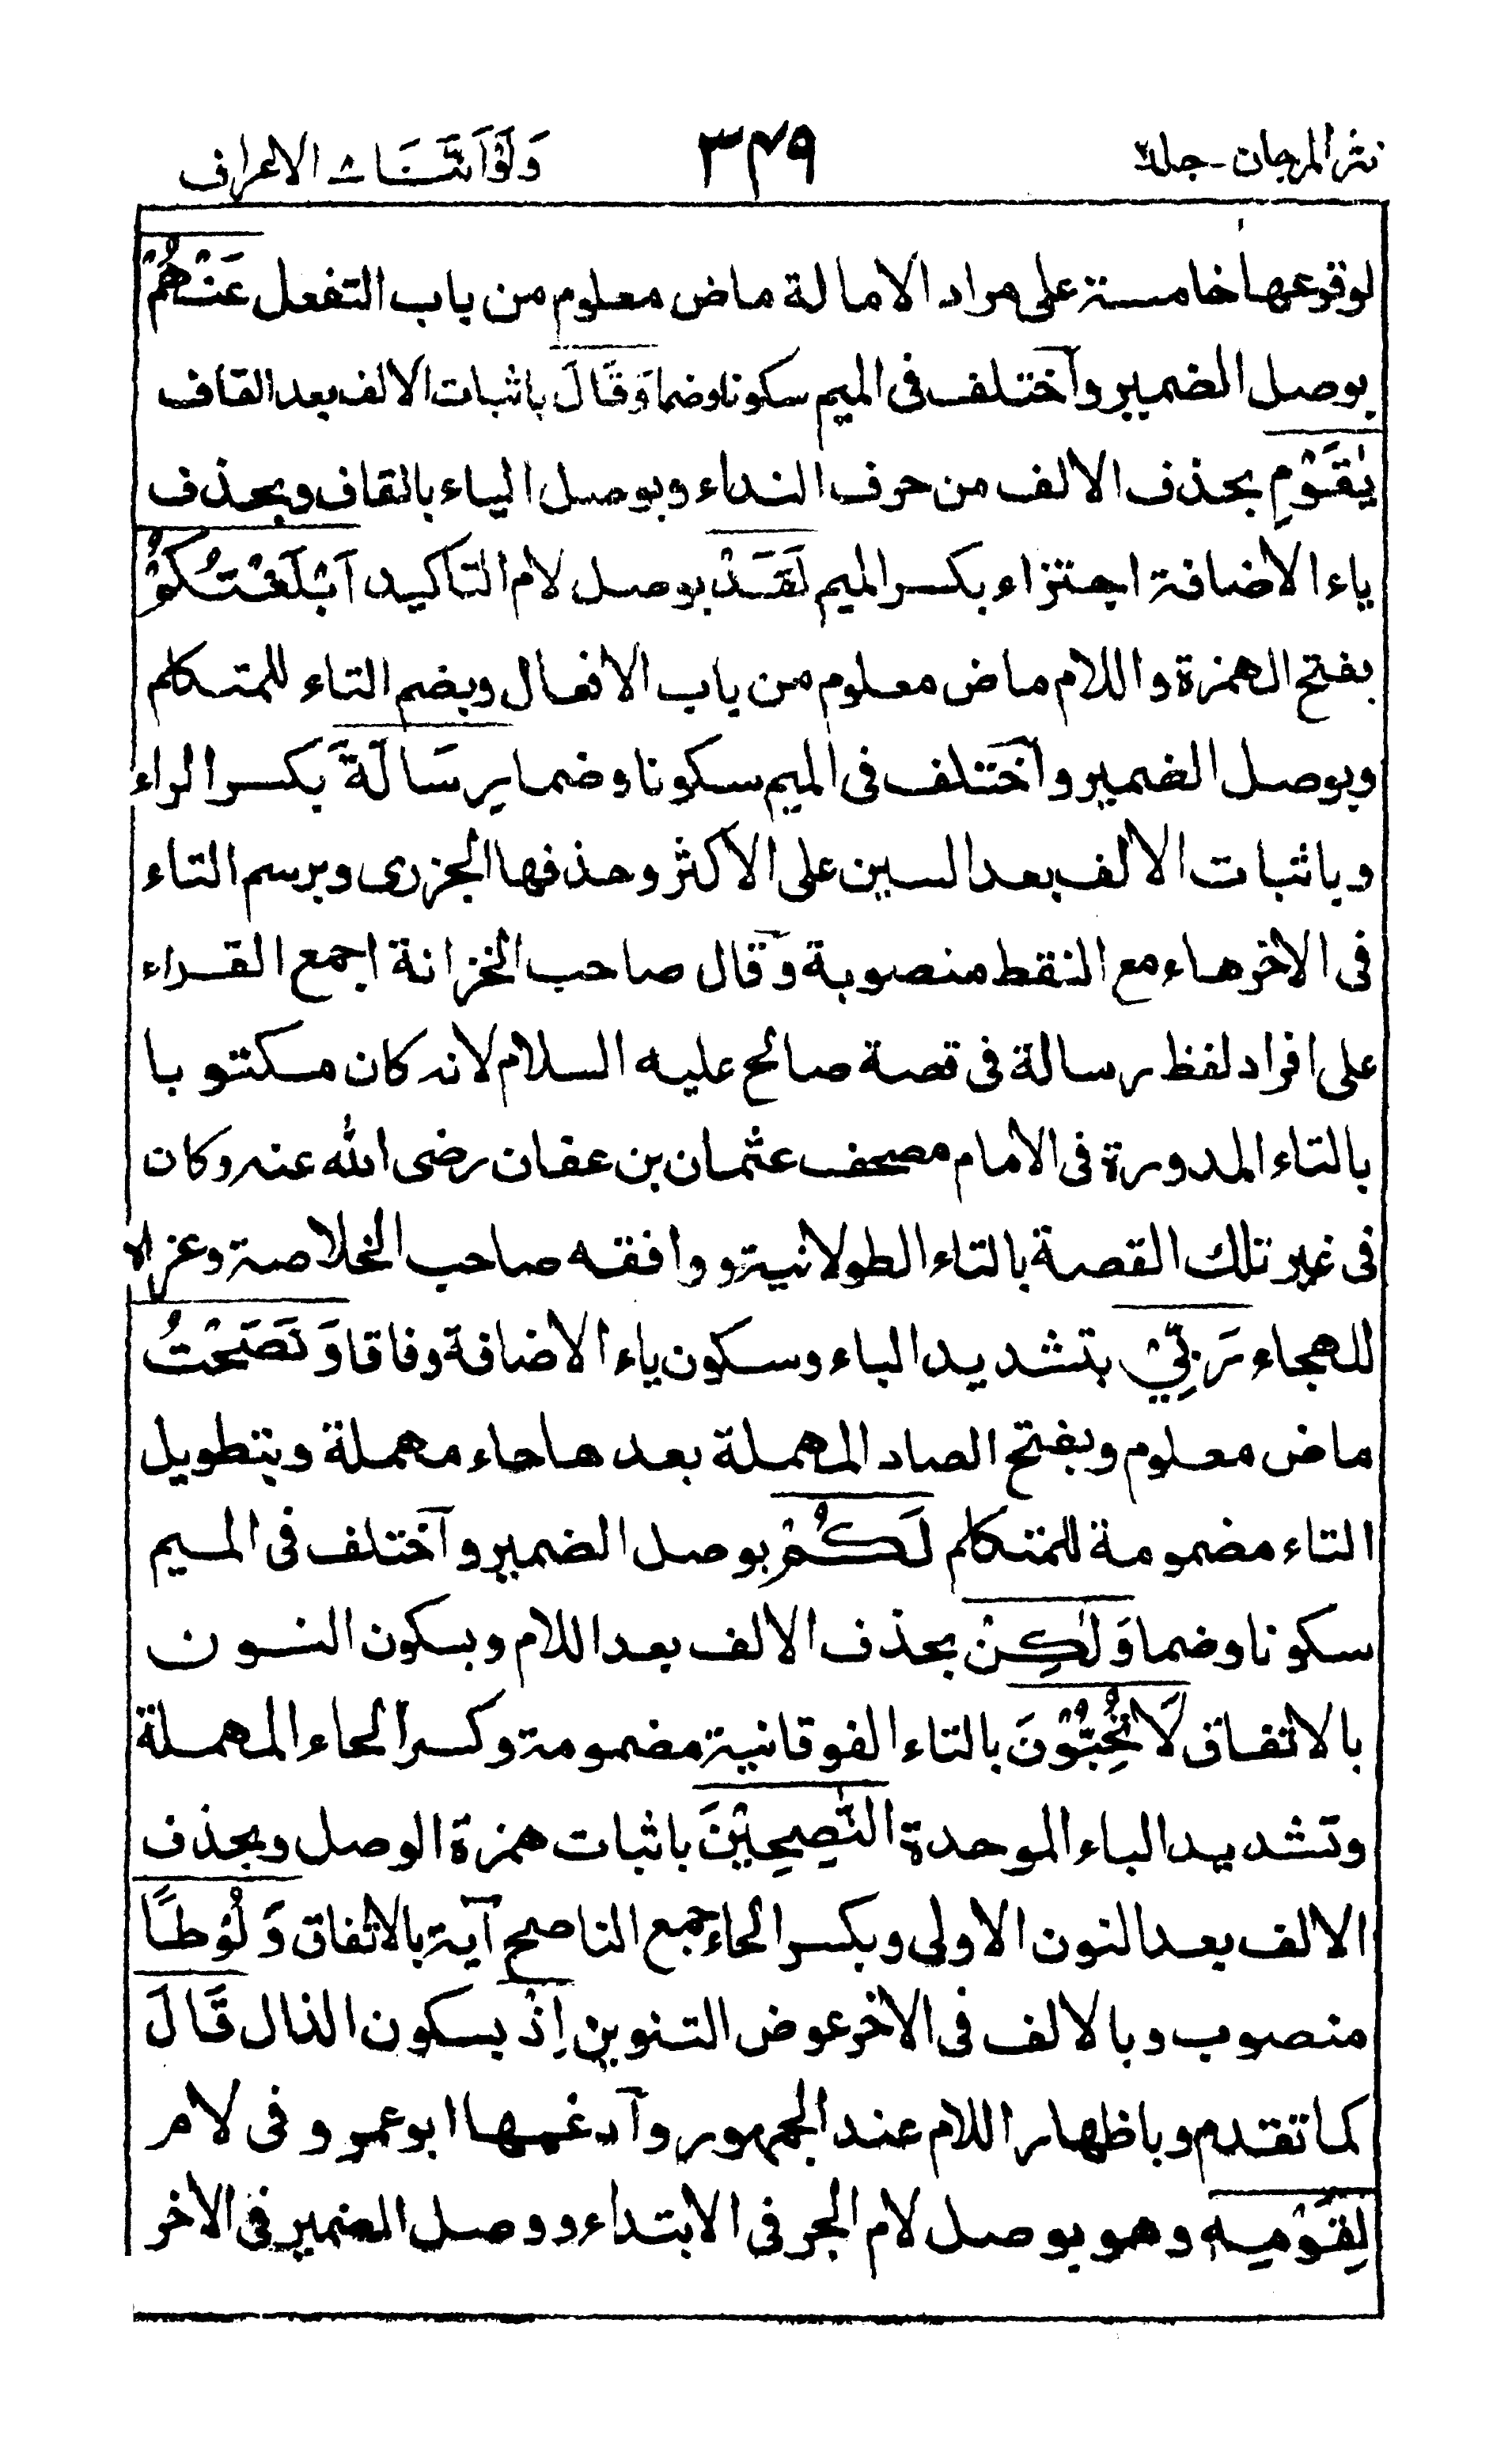 نثر المرجان - جلد٢ ٣٤٩ وَلَوْ اَنَّنَا ٨ الاعراف
لوقوعها خامسة على مراد الامالة ماض معلوم من باب التفعل عَنْهُمْ
بوصل الضمير وآختلف فى الميم سكونا وضما وَقَالَ باثبات الالف بعد القاف
يٰقَوْمِ بحذف الالف من حرف النداء وبوصل الياء بالقاف وبحذف
ياء الاضافة اجتزاء بكسر الميم لَقَدْ بوصل لام التاكيد اَبْلَغْتُكُمْ
بفتح الهمزة واللام ماض معلوم من باب الافعال وبضم التاء للمتكلم
وبوصل الضمير وآختلف فى الميم سكونا وضما رِسَالَةَ بكسر الراء
وباثبات الالف بعد السين على الاكثر وحذفها الجزرى وبرسم التاء
فى الاخر هاء مع النقط منصوبة وقال صاحب الخزانة اجمع القراء
على افراد لفظ رسالة فى قصة صالح عليه السلام لانه كان مكتوبا
بالتاء المدورة فى الامام مصحف عثمان بن عفان رضى الله عنه وكان
فى غير تلك القصة بالتاء الطولانية ووافقه صاحب الخلاصة وعزاه
للهجاء رَبِّيْ بتشديد الباء وسكون ياء الاضافة وفاقا وَنَصَحْتُ
ماض معلوم وبفتح الصاد المهملة بعدها حاء مهملة وبتطويل
التاء مضمومة للمتكلم لَكُمْ بوصل الضمير وآختلف فى الميم
سكونا وضما وَلٰكِنْ بحذف الالف بعد اللام وبسكون النون
بالاتفاق لَا تُحِبُّوْنَ بالتاء الفوقانية مضمومة وكسر الحاء المهملة
وتشديد الباء الموحدة النّٰصِحِيْنَ باثبات همزة الوصل وبحذف
الالف بعد النون الاولى وبكسر الحاء جمع الناصح آية بالاتفاق وَلُوْطًا
منصوب وبالالف فى الاخر عوض التنوين اِذْ بسكون الذال قَالَ
كما تقدم وباظهار اللام عند الجمهور وآدغمها ابو عمرو فى لام
لِقَوْمِهٖ وهو بوصل لام الجر فى الابتداء ووصل الضمير فى الاخر